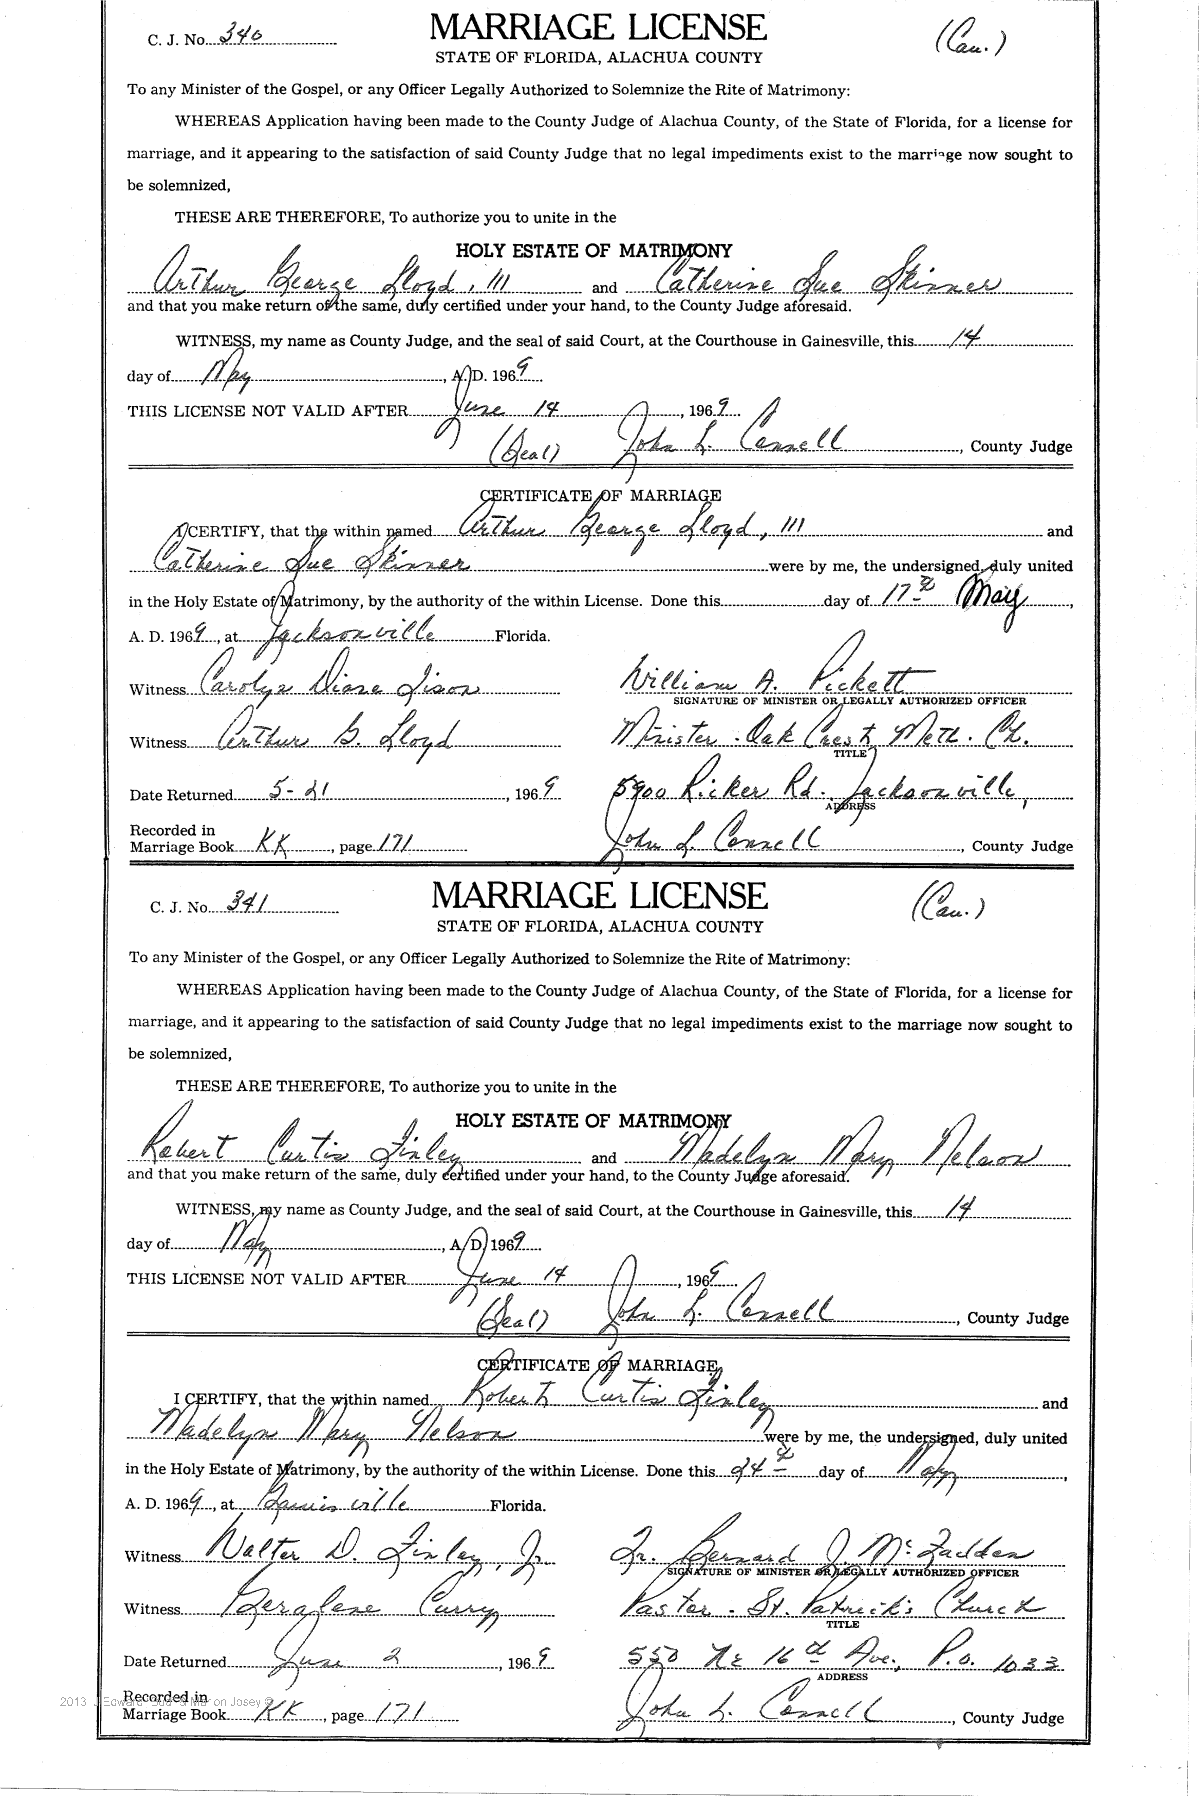 C. J. No. 340 MARRIAGE LICENSE (Cau.)
STATE OF FLORIDA, ALACHUA COUNTY
To any Minister of the Gospel, or any Officer Legally Authorized to Solemnize the Rite of Matrimony:
WHEREAS Application having been made to the County Judge of Alachua County, of the State of Florida, for a license for
marriage, and it appearing to the satisfaction of said County Judge that no legal impediments exist to the marriage now sought to
be solemnized,
THESE ARE THEREFORE, To authorize you to unite in the
HOLY ESTATE OF MATRIMONY
Arthur George Lloyd, III and Catherine Sue Skinner
and that you make return of the same, duly certified under your hand, to the County Judge aforesaid.
WITNESS, my name as County Judge, and the seal of said Court, at the Courthouse in Gainesville, this 14
day of May, A. D. 1969
THIS LICENSE NOT VALID AFTER June 14, 1969
(Seal) John L. Connell, County Judge
CERTIFICATE OF MARRIAGE
I CERTIFY, that the within named Arthur George Lloyd, III and
Catherine Sue Skinner were by me, the undersigned, duly united
in the Holy Estate of Matrimony, by the authority of the within License. Done this day of 17th May,
A. D. 1969, at Jacksonville Florida.
Witness Carolyn Diane William A. Pickett
SIGNATURE OF MINISTER OR LEGALLY AUTHORIZED OFFICER
Witness Arthur G. Lloyd Minister - Oak Crest Meth. Ch.
TITLE
Date Returned 5-21, 1969 5900 Ricker Rd. Jacksonville,
ADDRESS
Recorded in
Marriage Book KK, page 171 John L. Connell, County Judge
C. J. No. 341 MARRIAGE LICENSE (Cau.)
STATE OF FLORIDA, ALACHUA COUNTY
To any Minister of the Gospel, or any Officer Legally Authorized to Solemnize the Rite of Matrimony:
WHEREAS Application having been made to the County Judge of Alachua County, of the State of Florida, for a license for
marriage, and it appearing to the satisfaction of said County Judge that no legal impediments exist to the marriage now sought to
be solemnized,
THESE ARE THEREFORE, To authorize you to unite in the
HOLY ESTATE OF MATRIMONY
Robert Curtis Finley and Madelyn Mary Nelson
and that you make return of the same, duly certified under your hand, to the County Judge aforesaid.
WITNESS, my name as County Judge, and the seal of said Court, at the Courthouse in Gainesville, this 14
day of May, A. D. 1969
THIS LICENSE NOT VALID AFTER June 14, 1969
(Seal) John L. Connell, County Judge
CERTIFICATE OF MARRIAGE
I CERTIFY, that the within named Robert Curtis Finley and
Madelyn Mary Nelson were by me, the undersigned, duly united
in the Holy Estate of Matrimony, by the authority of the within License. Done this 24th day of May,
A. D. 1969, at Gainesville Florida.
Witness Walter D. Finley, Jr. Fr. Bernard J. McFadden
SIGNATURE OF MINISTER OR LEGALLY AUTHORIZED OFFICER
Witness Curry Pastor - St. Patrick's Church
TITLE
Date Returned June 2, 1969 550 NE 16th Ave., P.O. 1033
ADDRESS
Recorded in
Marriage Book KK, page 171 John L. Connell, County Judge